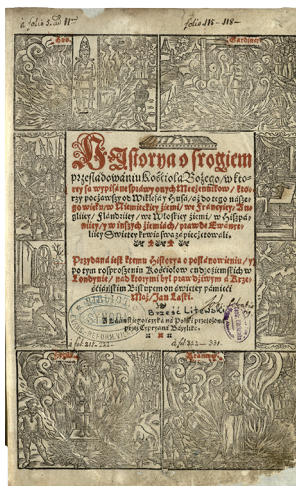 a folio 1. ad 11
folio 115 - 118 -
Hus.
Gardiner
HIstorya o srogiem
prześladowaniu Kościoła Bożego / w kto-
rey są wypisane sprawy onych Męczenników / kto-
rzy począwszy od Wiklefa y Husa / aż do tego násze-
go wieku / w Niemieckiey ziemi / we Fráncyiey / An-
gliiey / Flándriiey / we Włoskiey ziemi / w Hiszpá-
niiey / y w inszych ziemiách / prawdę Ewánye-
liiey Swiętey krwią swą zápieczętowáli.
Przydána iest k temu Historya o postánowieniu / y
po tym rosproszeniu Kościołow cudzoziemskich w
Londynie / nád ktorymi był prawdziwym á Krze-
ściáńskim Biskupem on świętey pámięci
Mąż / Jan Łaski.
Brześć Litewski
Z Láćińskiego ięzyká ná Polski przełożona
przez Cypryaná Bázyliká.
a fol. 322 - 331.